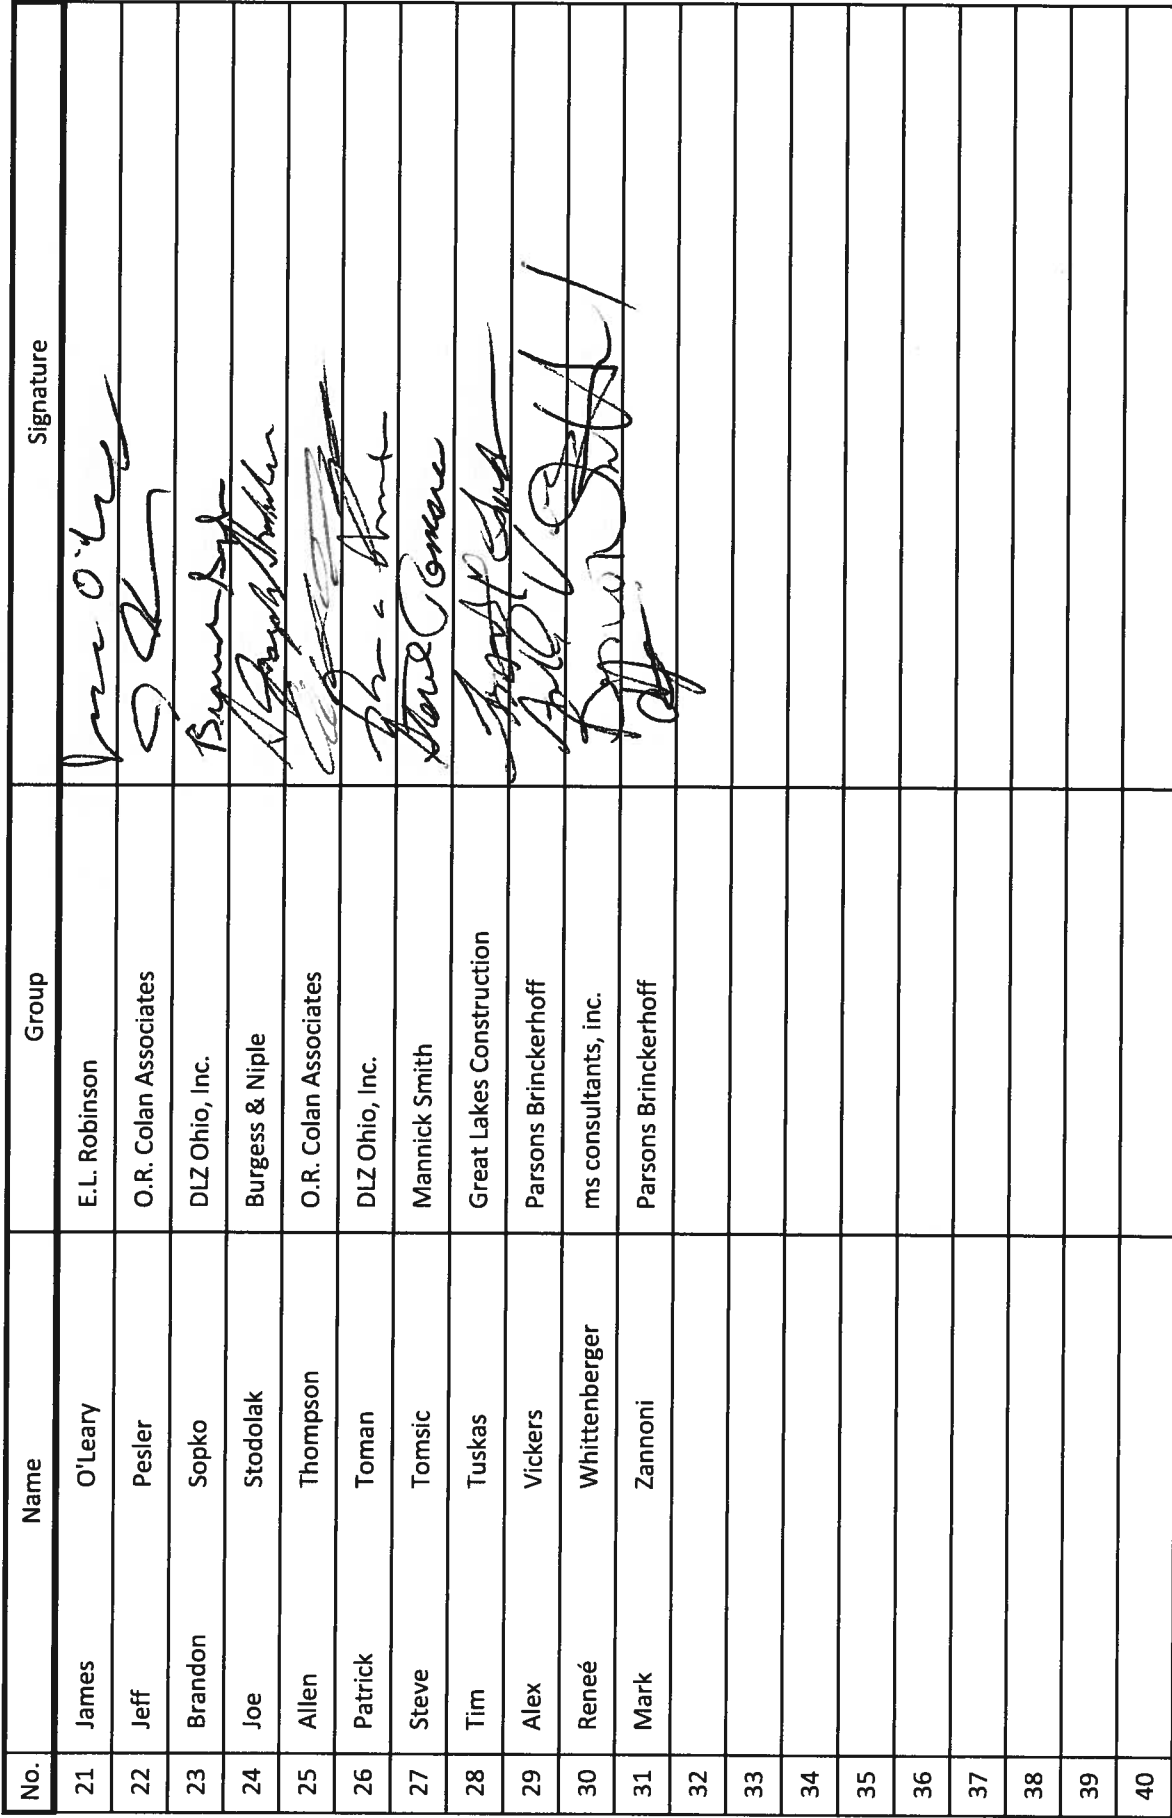 No. Name Group Signature
21 James O'Leary E.L. Robinson
22 Jeff Pesler O.R. Colan Associates
23 Brandon Sopko DLZ Ohio, Inc.
24 Joe Stodolak Burgess & Niple
25 Allen Thompson O.R. Colan Associates
26 Patrick Toman DLZ Ohio, Inc.
27 Steve Tomsic Mannick Smith
28 Tim Tuskas Great Lakes Construction
29 Alex Vickers Parsons Brinckerhoff
30 Reneé Whittenberger ms consultants, inc.
31 Mark Zannoni Parsons Brinckerhoff
32
33
34
35
36
37
38
39
40